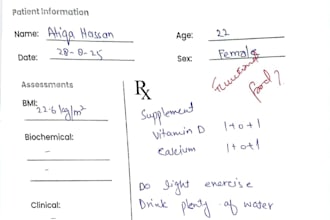 Patient Information
Name: Atiqa Hassan
Age: 22
Date: 28-8-25
Sex: Female
Functional
food?
Assessments
Rx
BMI:
22.6 kg/m²
Supplement
Vitamin D 1+0+1
Calcium 1+0+1
Biochemical:
–
–
Do light exercise
Drink plenty of water
Clinical: